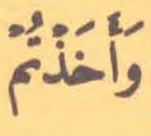 وَأَخَذْتُمْ